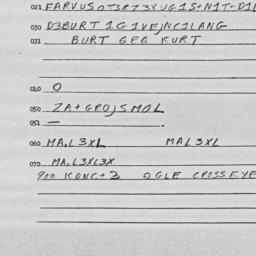 021 FARVUS
030 D3BURT 1G1VEJNC1LANG
031 BURT GEG KURT
040 0
050 ZA+GROJSMOL
051 —
060 MA.L3XL MAL3XL
070 MA.L3XL3X
900 KONC+3 OGLE CROSSEYE